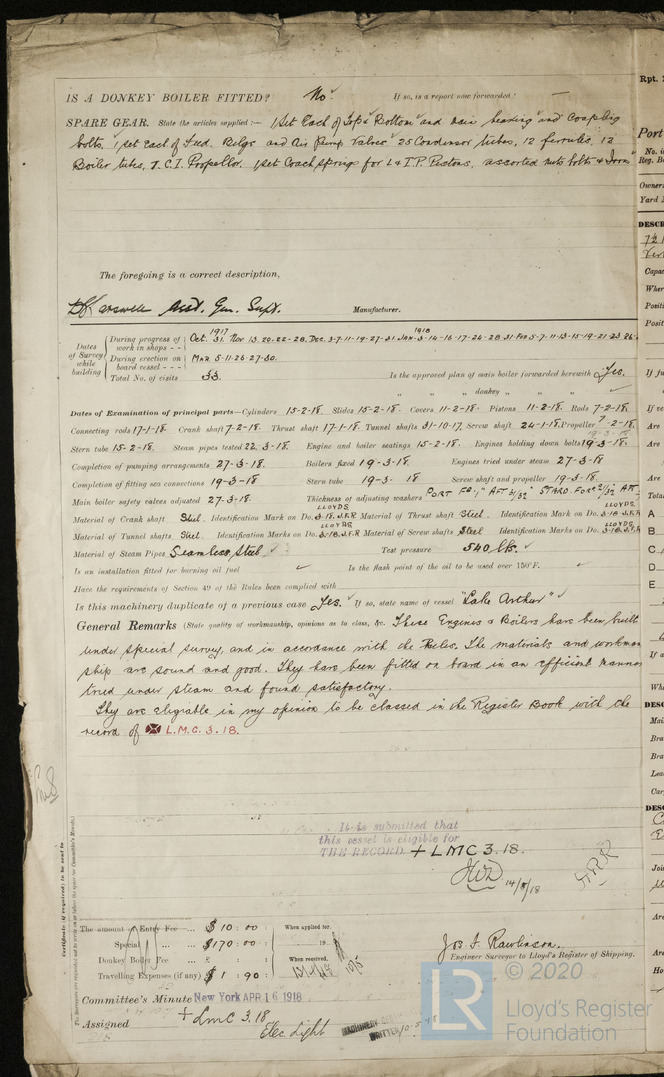 IS A DONKEY BOILER FITTED? No If so, is a report now forwarded? —
SPARE GEAR. State the articles supplied:— 1 Set Each of Top & Bottom and main bearing and Coupling
bolts. 1 set each of Feed. Belge and Air Pump Valves 25 Condensor tubes, 12 ferrules, 12
Boiler tubes, 1. C.I. Propellor. 1 set Coach springs for L & I.P. Pistons, assorted nuts bolts & Irons
The foregoing is a correct description,
Asst. Gen. Supt. Manufacturer.
Dates of Survey while building
1917 1918
During progress of work in shops - - Oct. 31. Nov 13. 20. 22. 28. Dec. 3. 7. 11. 19. 27. 31 Jan. 3. 14. 16. 17. 24. 28. 31. Feb 5. 7. 11. 13. 15. 19. 21. 23 26
During erection on board vessel - - - Mar 5. 11. 26. 27. 30.
Total No. of visits 33. Is the approved plan of main boiler forwarded herewith Yes.
" " " donkey " "
Dates of Examination of principal parts—Cylinders 15-2-18. Slides 15-2-18. Covers 11-2-18. Pistons 11-2-18. Rods 7-2-18.
Connecting rods 17-1-18. Crank shaft 7-2-18. Thrust shaft 17-1-18. Tunnel shafts 31-10-17. Screw shaft 24-1-18. Propeller 7-2-18.
Stern tube 15-2-18. Steam pipes tested 22.3-18. Engine and boiler seatings 15-2-18. Engines holding down bolts 19-3-18.
Completion of pumping arrangements 27-3-18. Boilers fixed 19-3-18. Engines tried under steam 27-3-18
Completion of fitting sea connections 19-3-18 Stern tube 19-3-18 Screw shaft and propeller 19-3-18.
Main boiler safety valves adjusted 27-3-18. Thickness of adjusting washers PORT AFT STARD.
Material of Crank shaft Steel. Identification Mark on Do. LLOYDS 3-18. J.F.R Material of Thrust shaft Steel. Identification Mark on Do. LLOYDS 3-18 J.F.R
Material of Tunnel shafts Steel. Identification Marks on Do. LLOYDS 3-18. J.F.R Material of Screw shafts Steel Identification Marks on Do. LLOYDS 3-18. J.F.R
Material of Steam Pipes Seamless Steel Test pressure 540 lbs.
Is an installation fitted for burning oil fuel Is the flash point of the oil to be used over 150°F.
Have the requirements of Section 49 of the Rules been complied with
Is this machinery duplicate of a previous case Yes. If so, state name of vessel "Lake Arthur"
General Remarks (State quality of workmanship, opinions as to class, &c. These Engines & Boilers have been built
under special survey, and in accordance with the Rules. The materials and workman
ship are sound and good. They have been fitted on board in an efficient manner
tried under steam and found satisfactory.
They are eligable in my opinion to be classed in the Register Book with the
record of L.M.C. 3.18.
It is submitted that
this vessel is eligible for
THE RECORD. + LMC 3.18.
14/5/18
The amount of Entry Fee ... $ 10 : 00 : When applied for.
Special ... ... $ 170 : 00 : 19
Donkey Boiler Fee ... £ : : When received,
Travelling Expenses (if any) $ 1 : 90 :
Jos. F. Rawlinson.
Engineer Surveyor to Lloyd's Register of Shipping.
Committee's Minute New York APR 16 1918
Assigned + LMC 3.18
Elec. Light
WRITTEN
Certificate (if required) to be sent to
(The Surveyors are requested not to write on or below the space for Committee's Minute.)
Rpt.
Port
No. i
Reg. B
Owner
Yard
DESCR
Capac
Wher
Positi
Posit
If ju
If ve
Are
Are
Are
Total
A
B
C
D
E
If a
Wh
DESC
Mai
Bra
Bra
Lea
Car
DESC
Joi
Are
Are
Ho
LR © 2020
Lloyd's Register
Foundation